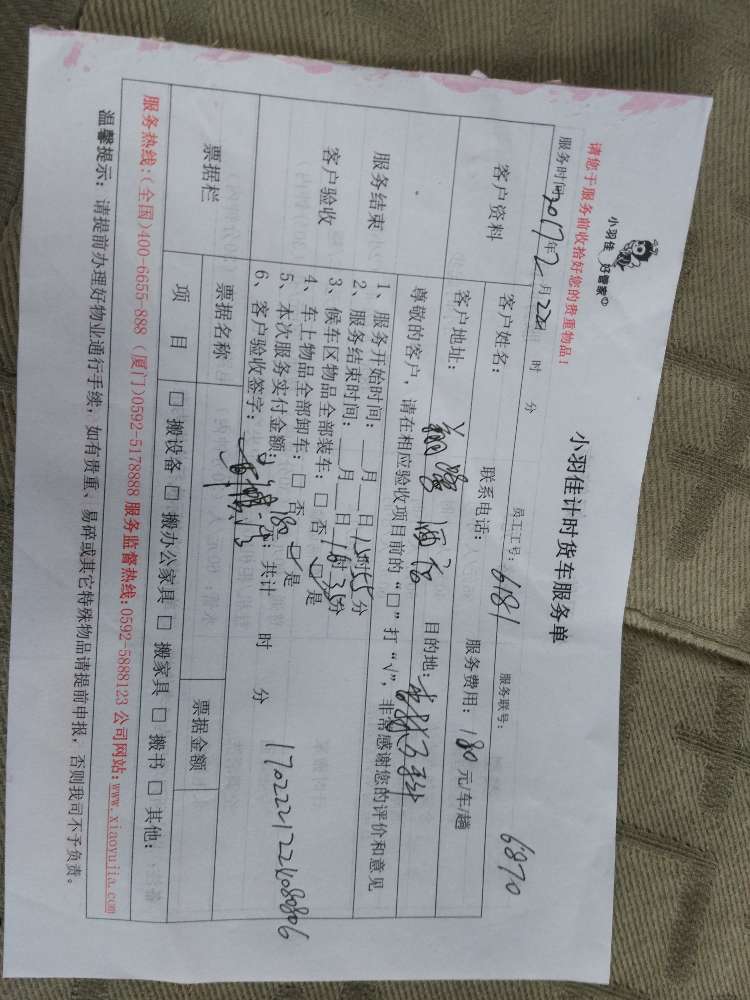 小羽佳 好管家
小羽佳计时货车服务单
请您于服务前收拾好您的贵重物品！
服务时间：2017年2月22日 时 分 员工工号：6181 服务联号：6870
客户资料
客户姓名： 联系电话： 服务费用：180元/车/趟
客户地址：翔鹭酒店 目的地：
服务结束
客户验收
尊敬的客户，请在相应验收项目前的“□”打“√”，非常感谢您的评价和意见
1、服务开始时间：__月__日15时55分
2、服务结束时间：__月__日16时35分
3、候车区物品全部装车：□ 否 ☑ 是
4、车上物品全部卸车：□ 否 ☑ 是
5、本次服务实付金额：180元；共计 时 分
6、客户验收签字：
17022217224080806
票据栏
票据名称
票据金额
项 目
□ 搬设备 □ 搬办公家具 □ 搬家具 □ 搬书 □ 其他：
服务热线：(全国)400-6655-888 (厦门)0592-5178888 服务监督热线：0592-5888123 公司网站：www.xiaoyujia.com
温馨提示：请提前办理好物业通行手续，如有贵重、易碎或其它特殊物品请提前申报，否则我司不予负责。